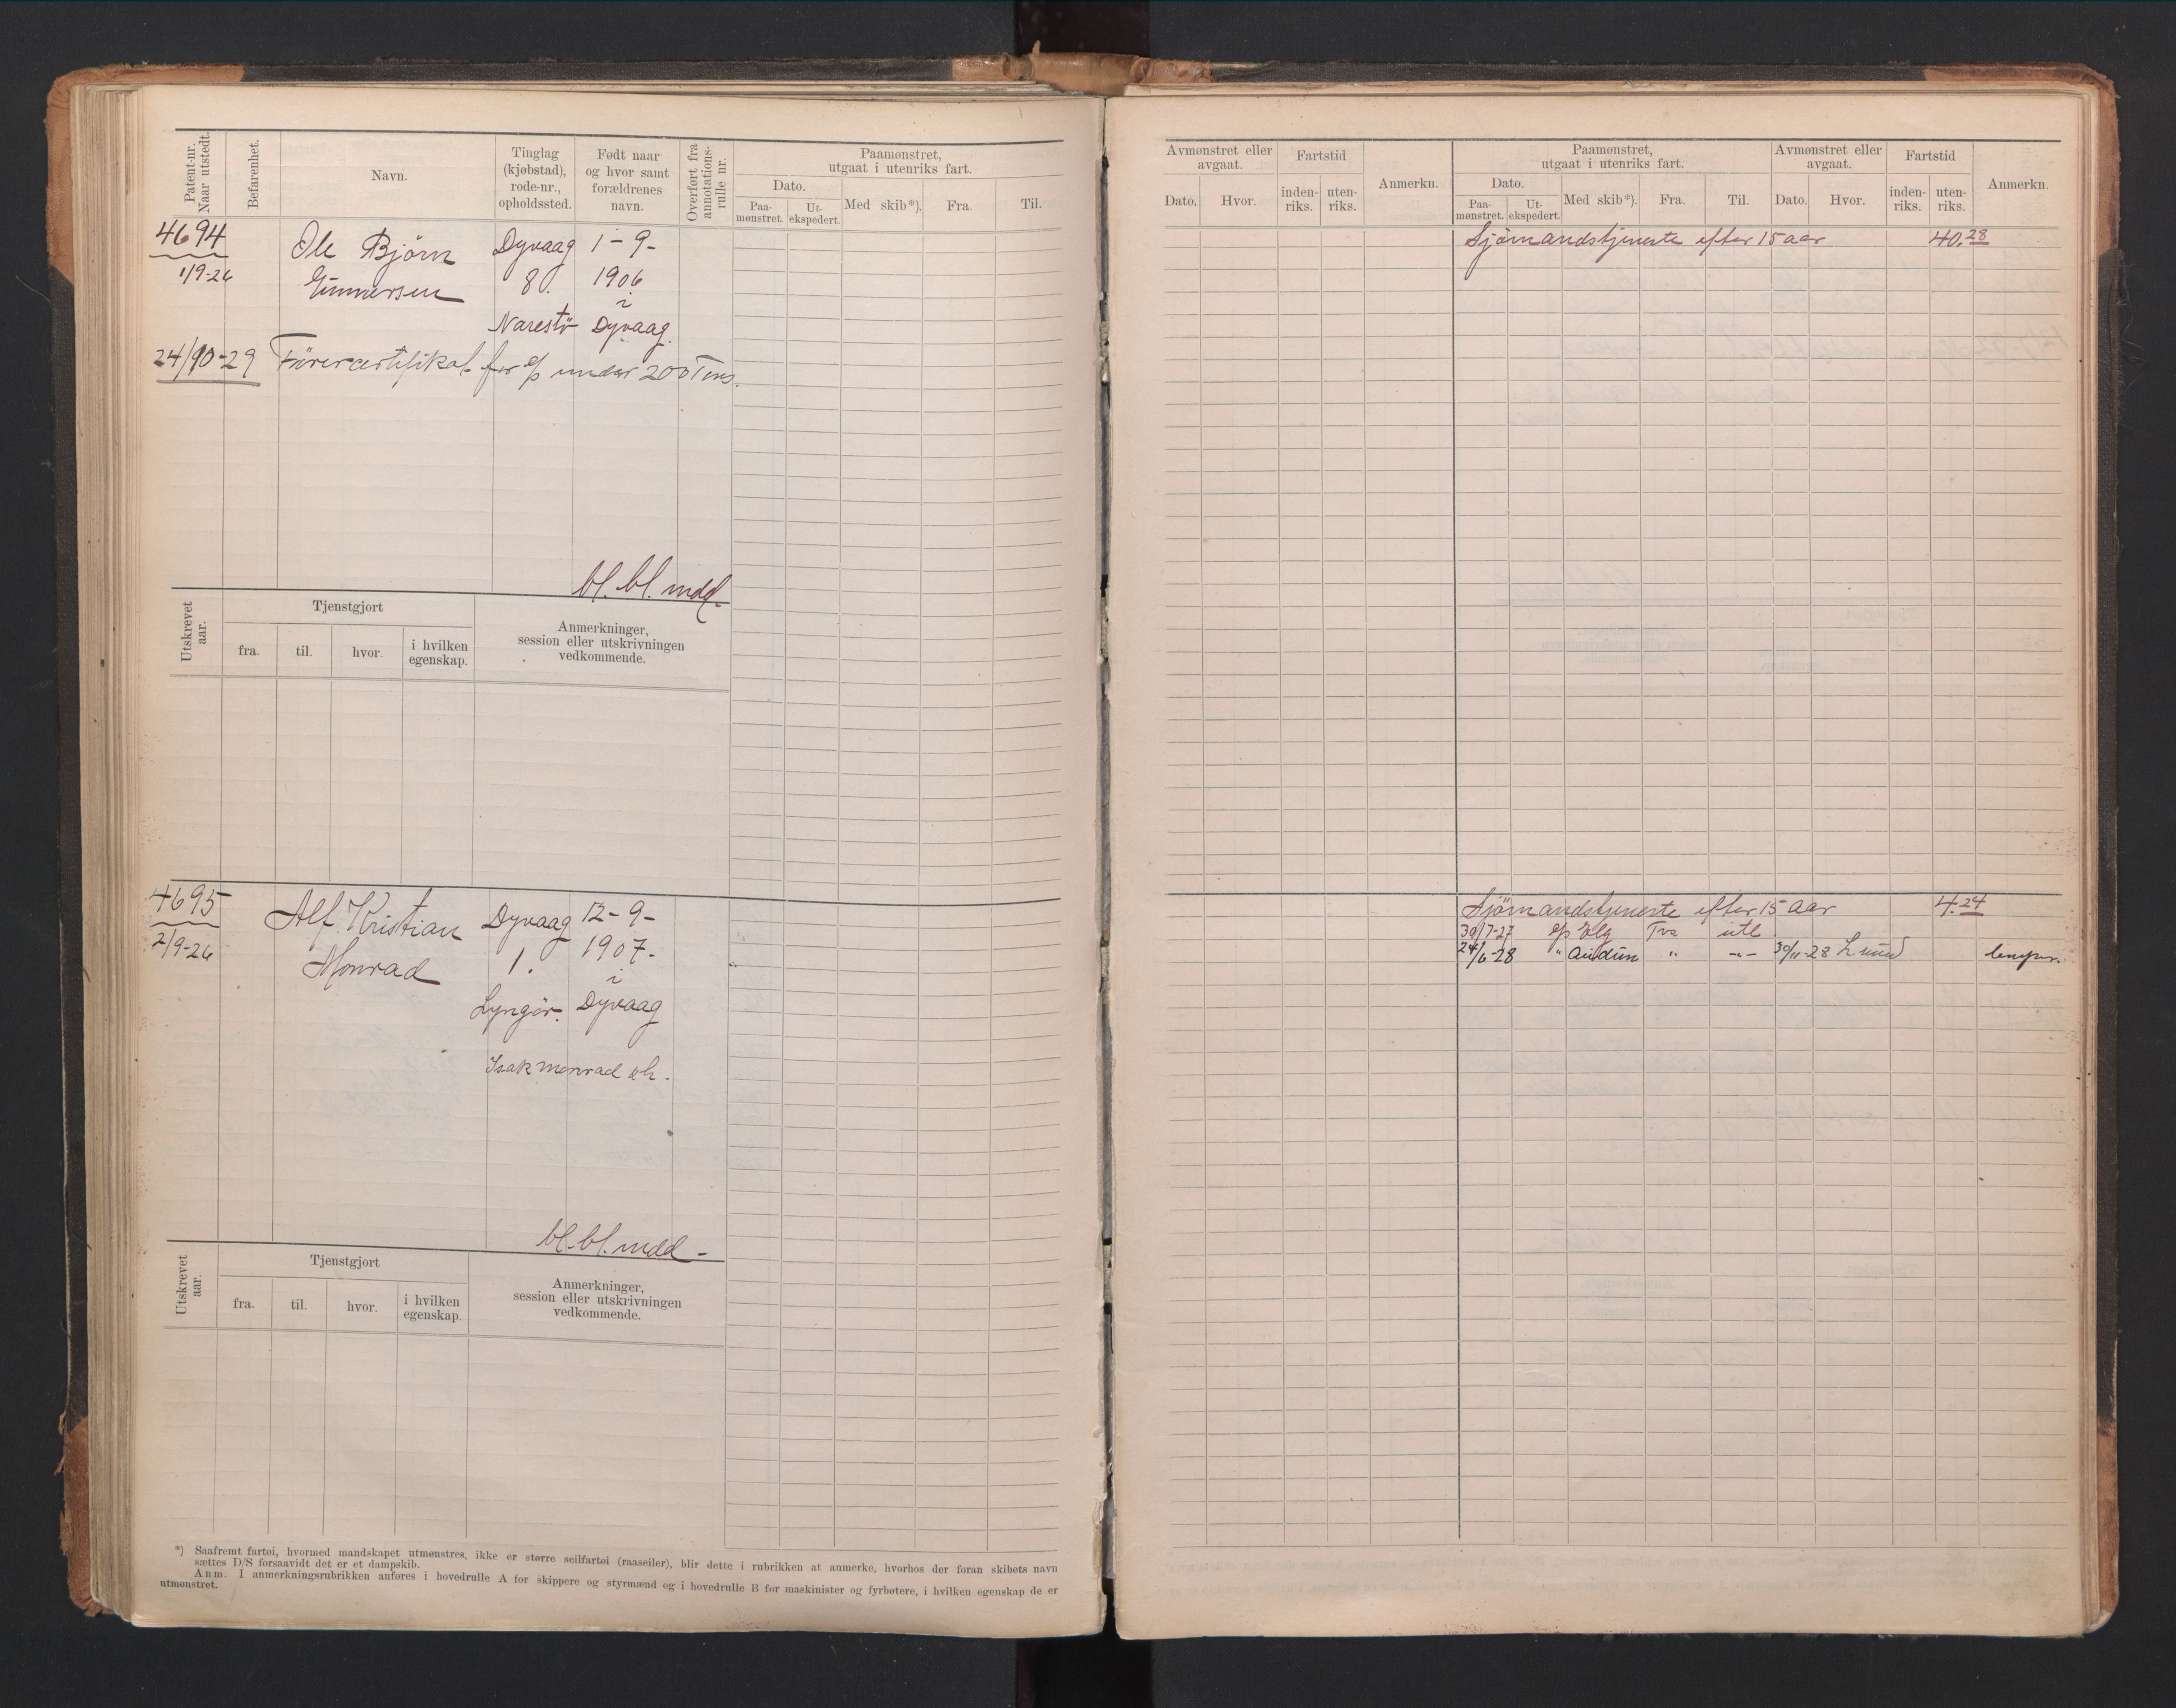 Patent-nr. Naar utstedt.
Befarenhet.
Navn.
Tinglag (kjøbstad), rode-nr., opholdssted.
Født naar og hvor samt forældrenes navn.
Overført fra annotations-rulle nr.
Paamønstret, utgaat i utenriks fart.
Dato.
Paa-mønstret.
Ut-ekspedert.
Med skib*).
Fra.
Til.
4694
1/9-26
Ole Bjørn
Gunnersen
Dyvaag
8.
Narestö
1-9-
1906
i
Dyvaag
24/10-29 Förercertifikat for S/S under 200 Tons.
bl. bl. mdd.
Utskrevet aar.
Tjenstgjort
fra.
til.
hvor.
i hvilken egenskap.
Anmerkninger, session eller utskrivningen vedkommende.
4695
2/9-26
Alf Kristian
Monrad
Dyvaag
1.
Lyngør.
12-9-
1907.
i
Dyvaag
Isak Monrad
bl. bl. mdd -
Utskrevet aar.
Tjenstgjort
fra.
til.
hvor.
i hvilken egenskap.
Anmerkninger, session eller utskrivningen vedkommende.
*) Saafremt fartøi, hvormed mandskapet utmønstres, ikke er større seilfartøi (raaseiler), blir dette i rubrikken at anmerke, hvorhos der foran skibets navn
sættes D/S forsaavidt det er et dampskib.
Anm. I anmerkningsrubrikken anføres i hovedrulle A for skippere og styrmænd og i hovedrulle B for maskinister og fyrbøtere, i hvilken egenskap de er
utmønstret.
Avmønstret eller avgaat.
Dato.
Hvor.
Fartstid
inden-riks.
uten-riks.
Anmerkn.
Paamønstret, utgaat i utenriks fart.
Dato.
Paa-mønstret.
Ut-ekspedert.
Med skib*).
Fra.
Til.
Avmønstret eller avgaat.
Dato.
Hvor.
Fartstid
inden-riks.
uten-riks.
Anmerkn.
Sjömandstjeneste efter 15 aar 40.28
Sjömandstjeneste efter 15 aar 4.24
30/7-27 S/S Elg Tva utl
24/6-28 " Audun " -"- 30/11-28 Lund